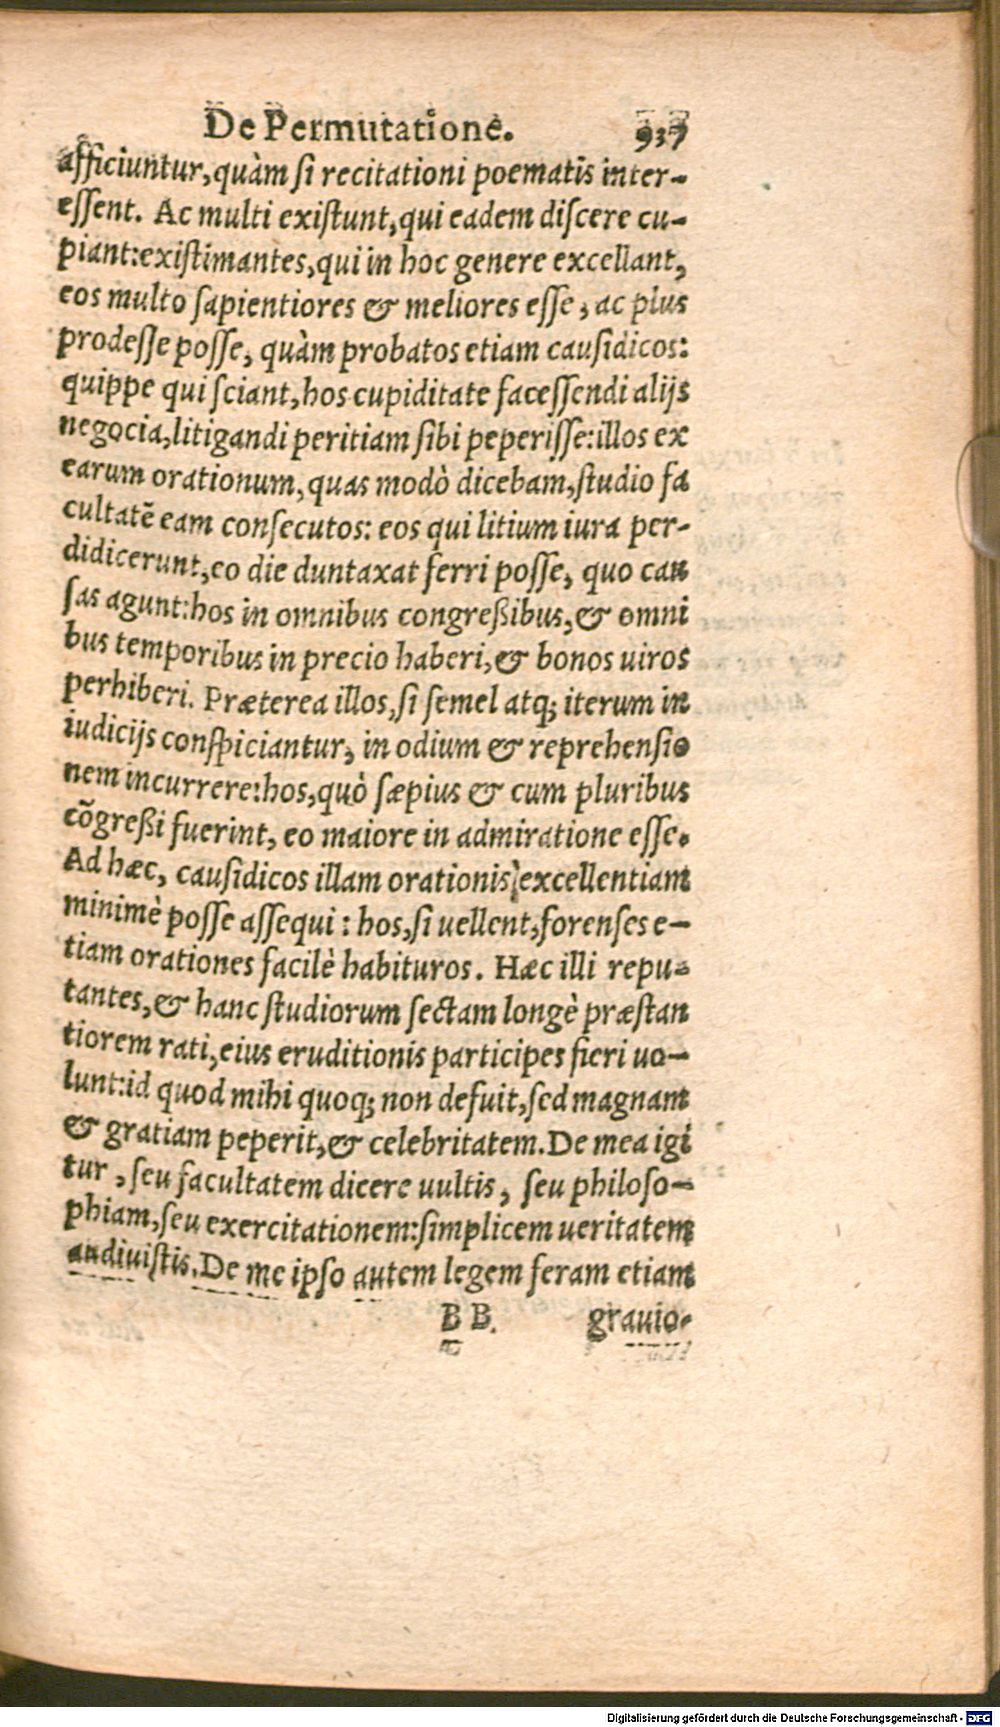 De Permutatione. 937
afficiuntur, quàm ſi recitationi poematis inter-
eſſent. Ac multi exiſtunt, qui eadem diſcere cu-
piant: exiſtimantes, qui in hoc genere excellant,
eos multo ſapientiores & meliores eſſe, ac plus
prodeſſe poſſe, quàm probatos etiam cauſidicos:
quippe qui ſciant, hos cupiditate faceſſendi alijs
negocia, litigandi peritiam ſibi peperiſſe: illos ex
earum orationum, quas modò dicebam, ſtudio fa
cultatē eam conſecutos: eos qui litium iura per-
didicerunt, eo die duntaxat ferri poſſe, quo cau
ſas agunt: hos in omnibus congreßibus, & omni
bus temporibus in precio haberi, & bonos uiros
perhiberi. Præterea illos, ſi ſemel atq; iterum in
iudicijs conſpiciantur, in odium & reprehenſio
nem incurrere: hos, quò ſæpius & cum pluribus
cōgreßi fuerint, eo maiore in admiratione eſſe.
Ad hæc, cauſidicos illam orationis excellentiam
minimè poſſe aſſequi: hos, ſi uellent, forenſes e-
tiam orationes facilè habituros. Hæc illi repu-
tantes, & hanc ſtudiorum ſectam longè præſtan
tiorem rati, eius eruditionis participes fieri uo-
lunt: id quod mihi quoq; non defuit, ſed magnam
& gratiam peperit, & celebritatem. De mea igi
tur, ſeu facultatem dicere uultis, ſeu philoſo-
phiam, ſeu exercitationem: ſimplicem ueritatem
audiuiſtis. De me ipſo autem legem feram etiam
BB. grauio-
Digitalisierung gefördert durch die Deutsche Forschungsgemeinschaft - DFG